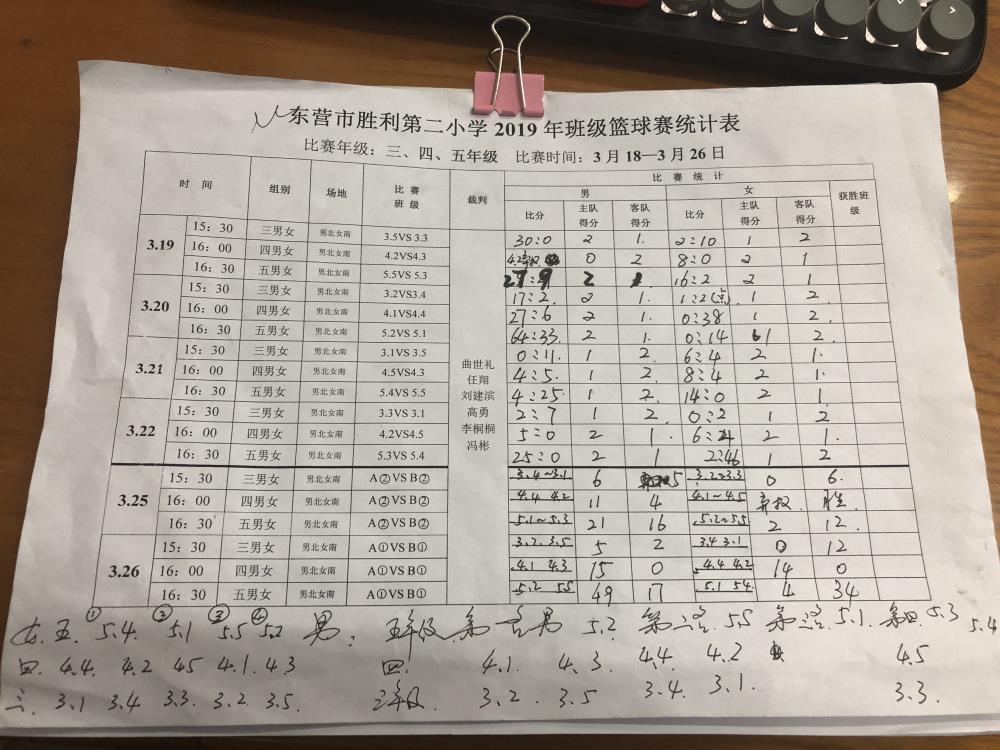 东营市胜利第二小学 2019 年班级篮球赛统计表
比赛年级：三、四、五年级 比赛时间：3 月 18—3 月 26 日
时 间 组别 场地 比 赛 班 级 裁判 比 赛 统 计 获胜班级
男 女
比分 主队得分 客队得分 比分 主队得分 客队得分
曲世礼
任翔
刘建滨
高勇
李桐桐
冯彬
3.19 15：30 三男女 男北女南 3.5VS 3.3 30:0 2 1. 2:10 1 2
16：00 四男女 男北女南 4.2VS4.3 0 2 8:0 2 1
16：30 五男女 男北女南 5.5VS 5.3 27:9 2 16:2 2 1
3.20 15：30 三男女 男北女南 3.2VS3.4 17:2. 2 1. 1:2 1 2.
16：00 四男女 男北女南 4.1VS4.4 27:6 2 1. 0:38 1 2.
16：30 五男女 男北女南 5.2VS 5.1 64:33. 2 1. 0:14 1 2.
3.21 15：30 三男女 男北女南 3.1VS 3.5 0:11. 1 2. 6:4 2 1.
16：00 四男女 男北女南 4.5VS4.3 4:5. 1 2. 8:4 2 1.
16：30 五男女 男北女南 5.4VS 5.5 4:25. 1 2. 14:0 2 1.
3.22 15：30 三男女 男北女南 3.3VS 3.1 2:7 1 2. 0:2 1 2
16：00 四男女 男北女南 4.2VS4.5 5:0 2 1. 6: 2 1.
16：30 五男女 男北女南 5.3VS 5.4 25:0 2 1 2:46 1 2
3.25 15：30 三男女 男北女南 A②VS B② 3.4~3.1 6 5 3.2~3.3 0 6.
16：00 四男女 男北女南 A②VS B② 4.4 4.2 11 4 4.1~4.5 弃权 胜.
16：30 五男女 男北女南 A②VS B② 5.1~5.3 21 16 5.2~5.5 2 12.
3.26 15：30 三男女 男北女南 A①VS B① 3.2. 3.5 5 2 3.4 3.1 0 12
16：00 四男女 男北女南 A①VS B① 4.1 4.3 15 0 4.4 4.2 14 0
16：30 五男女 男北女南 A①VS B① 5.2 5.5 49 17 5.1 5.4 4 34
① ② ③ ④
女.五. 5.4. 5.1 5.5 5.2 男： 五年级 第一名男 5.2 第二名. 5.5 第三名. 5.1. 第四. 5.3 5.4
四. 4.4. 4.2 4.5 4.1. 4.3 四. 4.1. 4.3. 4.4. 4.2 4.5
三. 3.1 3.4 3.3. 3.2 3.5. 三年级. 3.2 3.5 3.4. 3.1. 3.3.